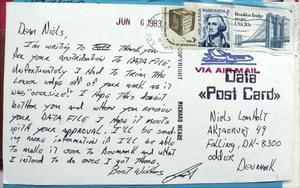 JUN 6 1983
Dear Niels,
I'm writing to thank you
for your contribution to DATA FILE.
Unfortunately I had to trim the
lower edge of your work as it
was "oversize". I hope this doesn't
bother you and when you receive
your DATA FILE I hope it meets
with your approval. I'll be sending
you more information if I'll be able
to make it over to Denmark and what
I intend to do once I get there.
Best Wishes
GEORGE WASHINGTON
Brooklyn Bridge
USA 20c
VIA AIR MAIL
COPYRIGHT
Data
«Post Card»
Niels Lomholt
Falling, DK-8300
Odder
Denmark